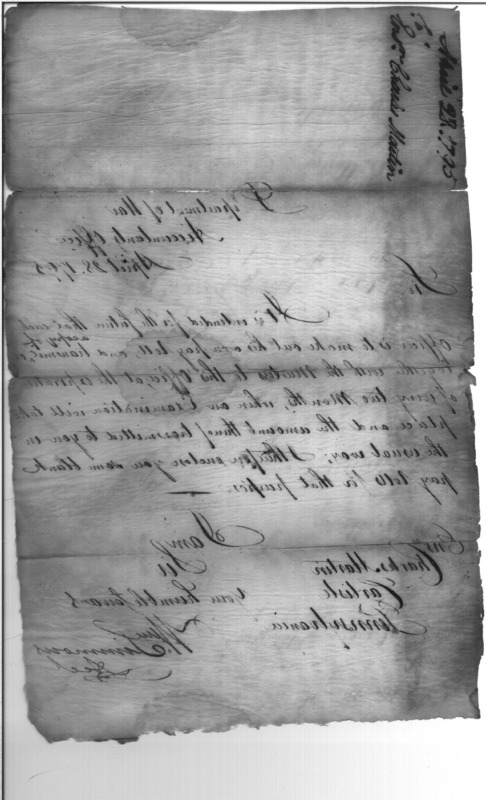 April 28. 1795
To
Ensn. Charles Martin
Department of War
Accountants Office
April 28. 1795
Sir
It is intended for the future that each
officer is to make out his own pay roll, and transmit
with the Musters to this Office, at the expiration
of every two Months, when an Examination will take
place and the amount transmitted to you in
the usual way; I therefore enclose you some blank
pay rolls for that purpose.
I am
Sir
Your humble Servant
Wm. Simmons
Ensn.
Charles Martin
Carlisle
Pennsylvania